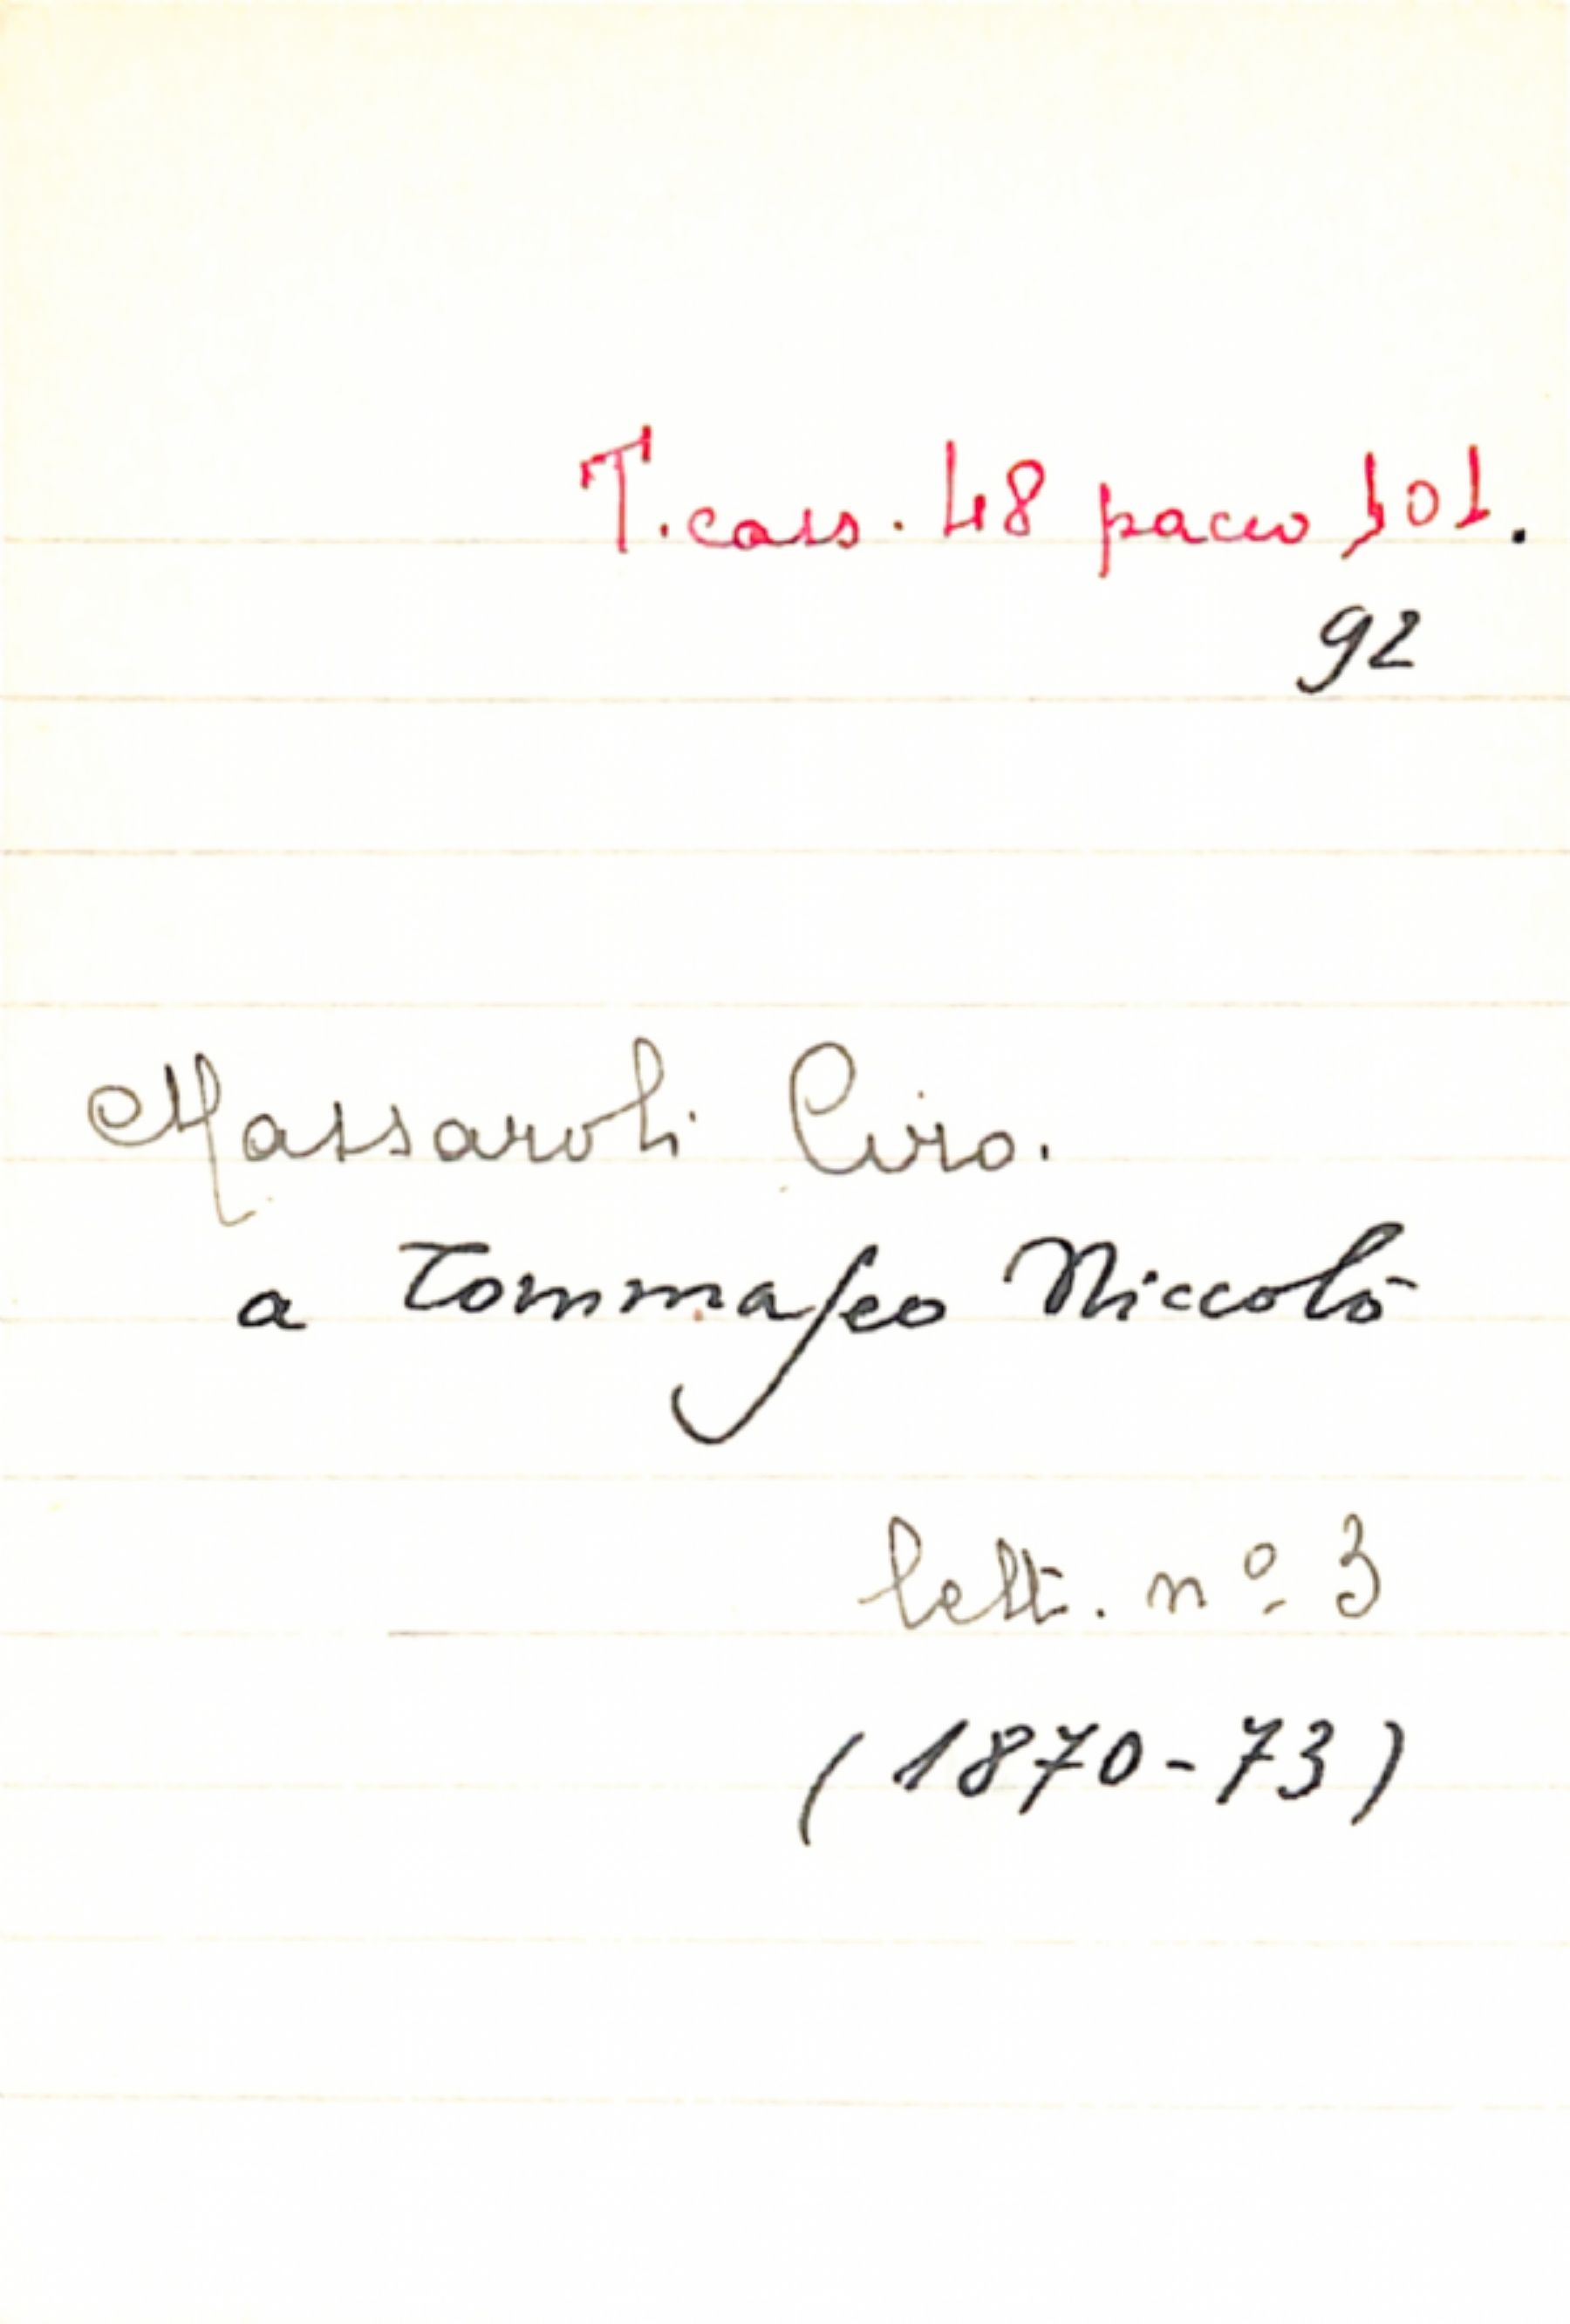 T. cass. 48 pacco 101.
92
Massaroli Ciro.
a Tommaseo Niccolò
lett. nº 3
(1870-73)